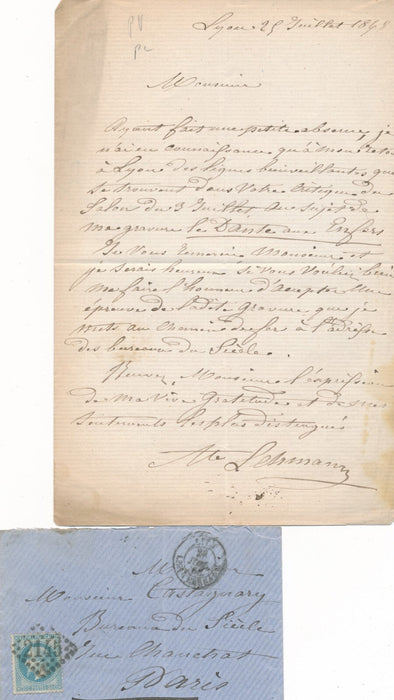 PV
pc
Lyon 25 Juillet 1868
Monsieur
Ayant fait une petite absence, je
n'ai eu connaissance qu'à mon retour
à Lyon des lignes bienveillantes que
se trouvent dans Votre Critique du
Salon du 3 Juillet au sujet de
ma gravure le Dante aux Enfers
Je Vous remercie Monsieur et
je serais heureux si Vous Vouliez bien
me faire l'honneur d'accepter une
épreuve de ladite gravure que je
mets au chemin de fer à l'adresse
des bureaux du Siècle.
Recevez, Monsieur l'expression
de ma Vive gratitude et de mes
sentiments les plus distingués
Ate Lehmann
Monsieur
Monsieur Castagnary
Bureau du Siècle
Rue Chauchat
Paris